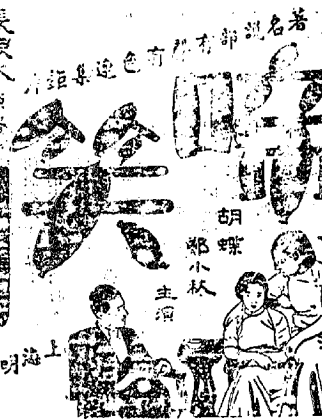 著名說部有聲有色連集鉅片
啼笑
胡蝶
鄭小秋
主演
上海明